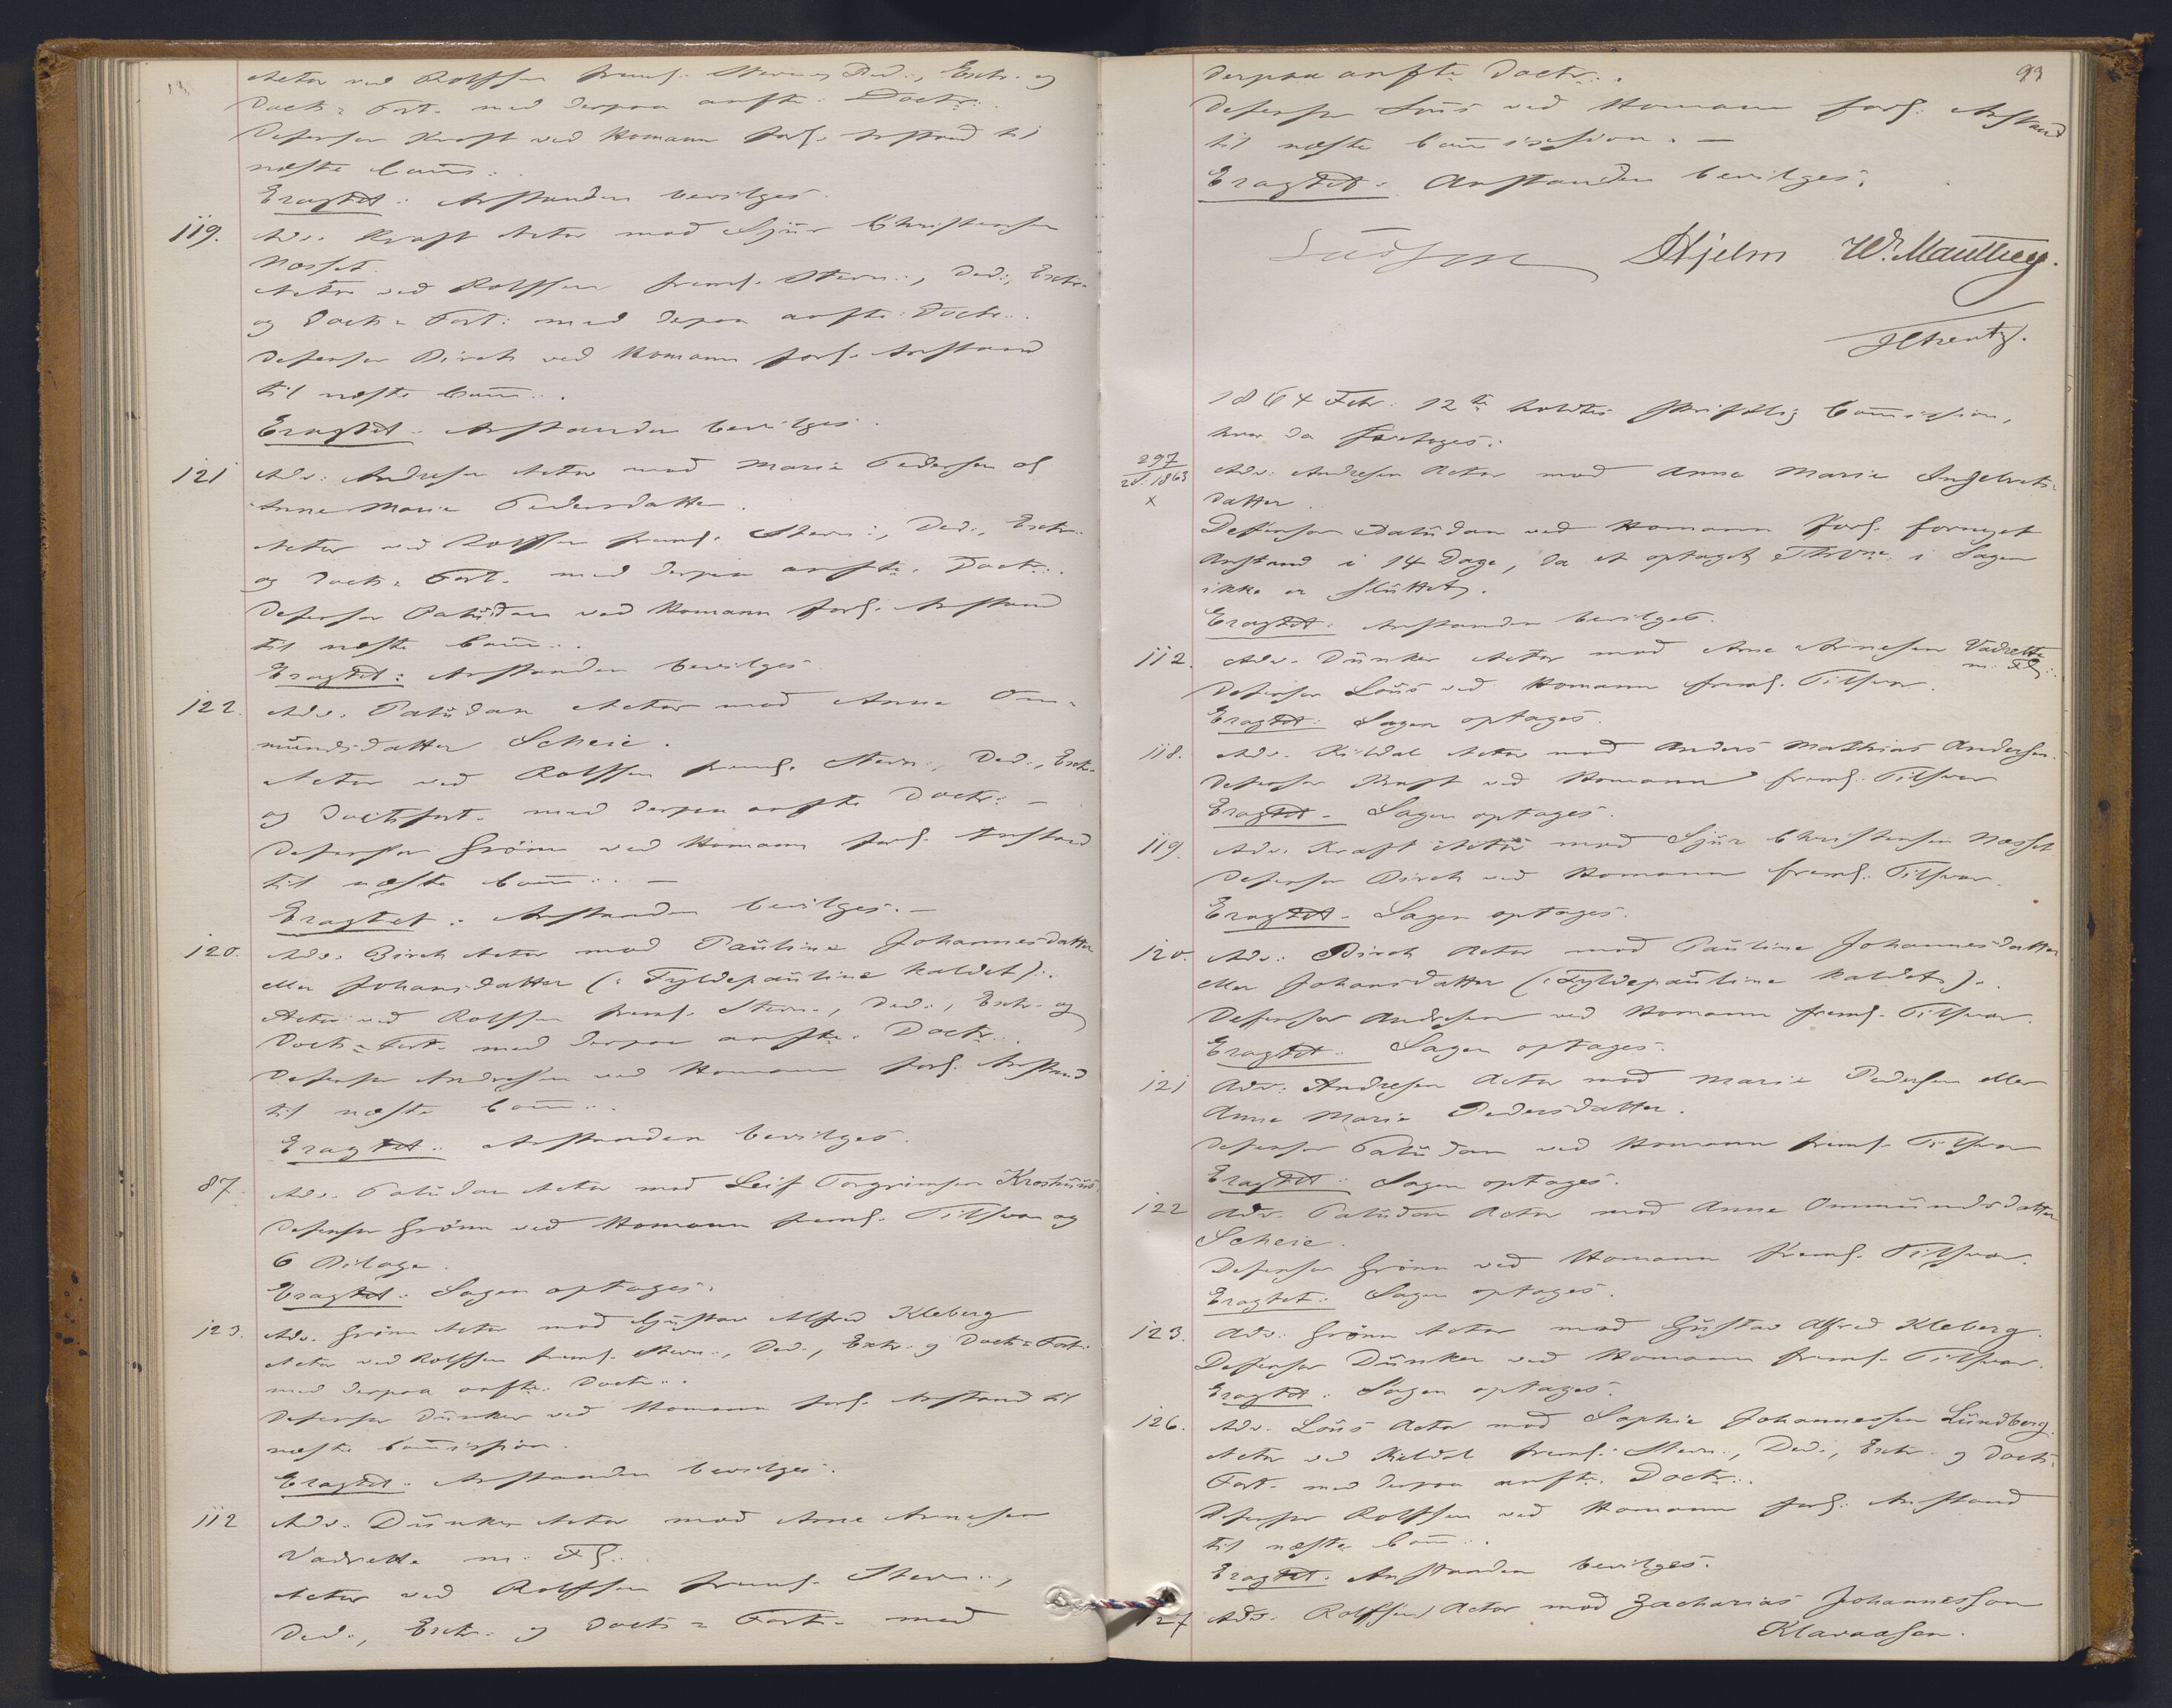 Actor ved Rolffsen freml. Stevn., Ded., Extr. og
Doct: Fort. med derpaa anfte. Doctr.
Defensor Kraft ved Homann forl. Anstand til
næste Comm:
Eragtet: Anstanden bevilges.
119. Adv. Kraft Actor mod Sjur Christensen
Nesset.
Actor ved Rolffsen freml. Stevn., Ded., Extr.
og Doct: Fort: med derpaa anfte. Doctr.
Defensor Birch ved Homann forl. Anstand
til næste Comm:.
Eragtet: Anstanden bevilges.
121 Adv. Andresen Actor mod Marie Pedersen el
Anne Marie Pedersdatter.
Actor ved Rolffsen freml. Stevn:, Ded., Extr.
og Doct: Fort. med derpaa anfte. Doctr.
Defensor Paludan ved Homann forl. Anstand
til næste Comm:.
Eragtet: Anstanden bevilges.
122. Adv. Paludan Actor mod Anne Om-
mundsdatter Scheie.
Actor ved Rolffsen freml. Stevn., Ded., Extr.
og Doctfort. med derpaa anfte Doctr. —
Defensor Grönn ved Homann forl. Anstand
til næste Comm:. —
Eragtet: Anstanden bevilges. —
120. Adv. Birch Actor mod Pauline Johannesdatter
eller Johansdatter (: Fyldepauline kaldet):.
Actor ved Rolffsen freml. Stevn., Ded., Extr. og
Doct: Fort. med derpaa anfte. Doctr.
Defensor Andresen ved Homann forl. Anstand
til næste Comm:.
Eragtet: Anstanden bevilges.
87. Adv. Paludan Actor mod Leif Torgrimsen Kroshuus.
Defensor Grönn ved Homann freml. Tilsvar og
6 Bilage.
Eragtet: Sagen optages.
123. Adv. Grönn Actor mod Gustav Alfred Kleberg
Actor ved Rolffsen freml. Stevn., Ded., Extr. og Doct: Fort.
med derpaa anfte. Doctr.
Defensor Dunker ved Homann forl. Anstand til
næste Commission.
Eragtet: Anstanden bevilges.
112 Adv. Dunker Actor mod Arne Arnesen
Vadsette m: Fl:
Actor ved Rolffsen freml. Stevn.,
Ded., Extr. og Doct: Fort. med
93
derpaa anfte Doctr.
Defensor Lous ved Homann forl. Anstand
til næste Commission. —
Eragtet: Anstanden bevilges.
Lasson Hjelm W. Manthey.
1864 Febr: 12te holdtes skriftlig Commission,
hvor da foretoges:
297
2S. 1863
x
Adv. Andresen Actor mod Anne Marie Ingebrets-
datter.
Defensor Paludan ved Homann forl. fornyet
Anstand i 14 Dage, da et optaget Thvne i Sagen
ikke er sluttet.
Eragtet: Anstanden bevilges.
112. Adv. Dunker Actor mod Arne Arnesen Vadsette
m: Fl:
Defensor Lous ved Homann freml. Tilsvar.
Eragtet: Sagen optages.
118. Adv. Kildal Actor mod Anders Mathias Andersen.
Defensor Kraft ved Homann freml. Tilsvar
Eragtet: Sagen optages.
119. Adv. Kraft Actor mod Sjur Christensen Nesset
Defensor Birch ved Homann freml. Tilsvar.
Eragtet: Sagen optages.
120. Adv. Birch Actor mod Pauline Johannesdatter
eller Johansdatter (: Fyldepauline kaldet:).
Defensor Andresen ved Homann freml. Tilsvar.
Eragtet: Sagen optages.
121 Adv. Andresen Actor mod Marie Pedersen eller
Anne Marie Pedersdatter.
Defensor Paludan ved Homann freml. Tilsvar
Eragtet: Sagen optages.
122 Adv. Paludan Actor mod Anne Ommundsdatter
Scheie.
Defensor Grönn ved Homann freml. Tilsvar.
Eragtet: Sagen optages.
123. Adv. Grönn Actor mod Gustav Alfred Kleberg.
Defensor Dunker ved Homann freml. Tilsvar.
Eragtet: Sagen optages.
126. Adv. Lous Actor mod Sophie Johannessen Lundberg.
Actor ved Kildal freml. Stevn., Ded., Extr. og Doct:
Fort. med derpaa anfte. Doctr.
Defensor Rolffsen ved Homann forl. Anstand
til næste Comm:.
Eragtet: Anstanden bevilges.
127 Adv. Rolffsen Actor mod Zacharias Johannesson
Klavaasen.